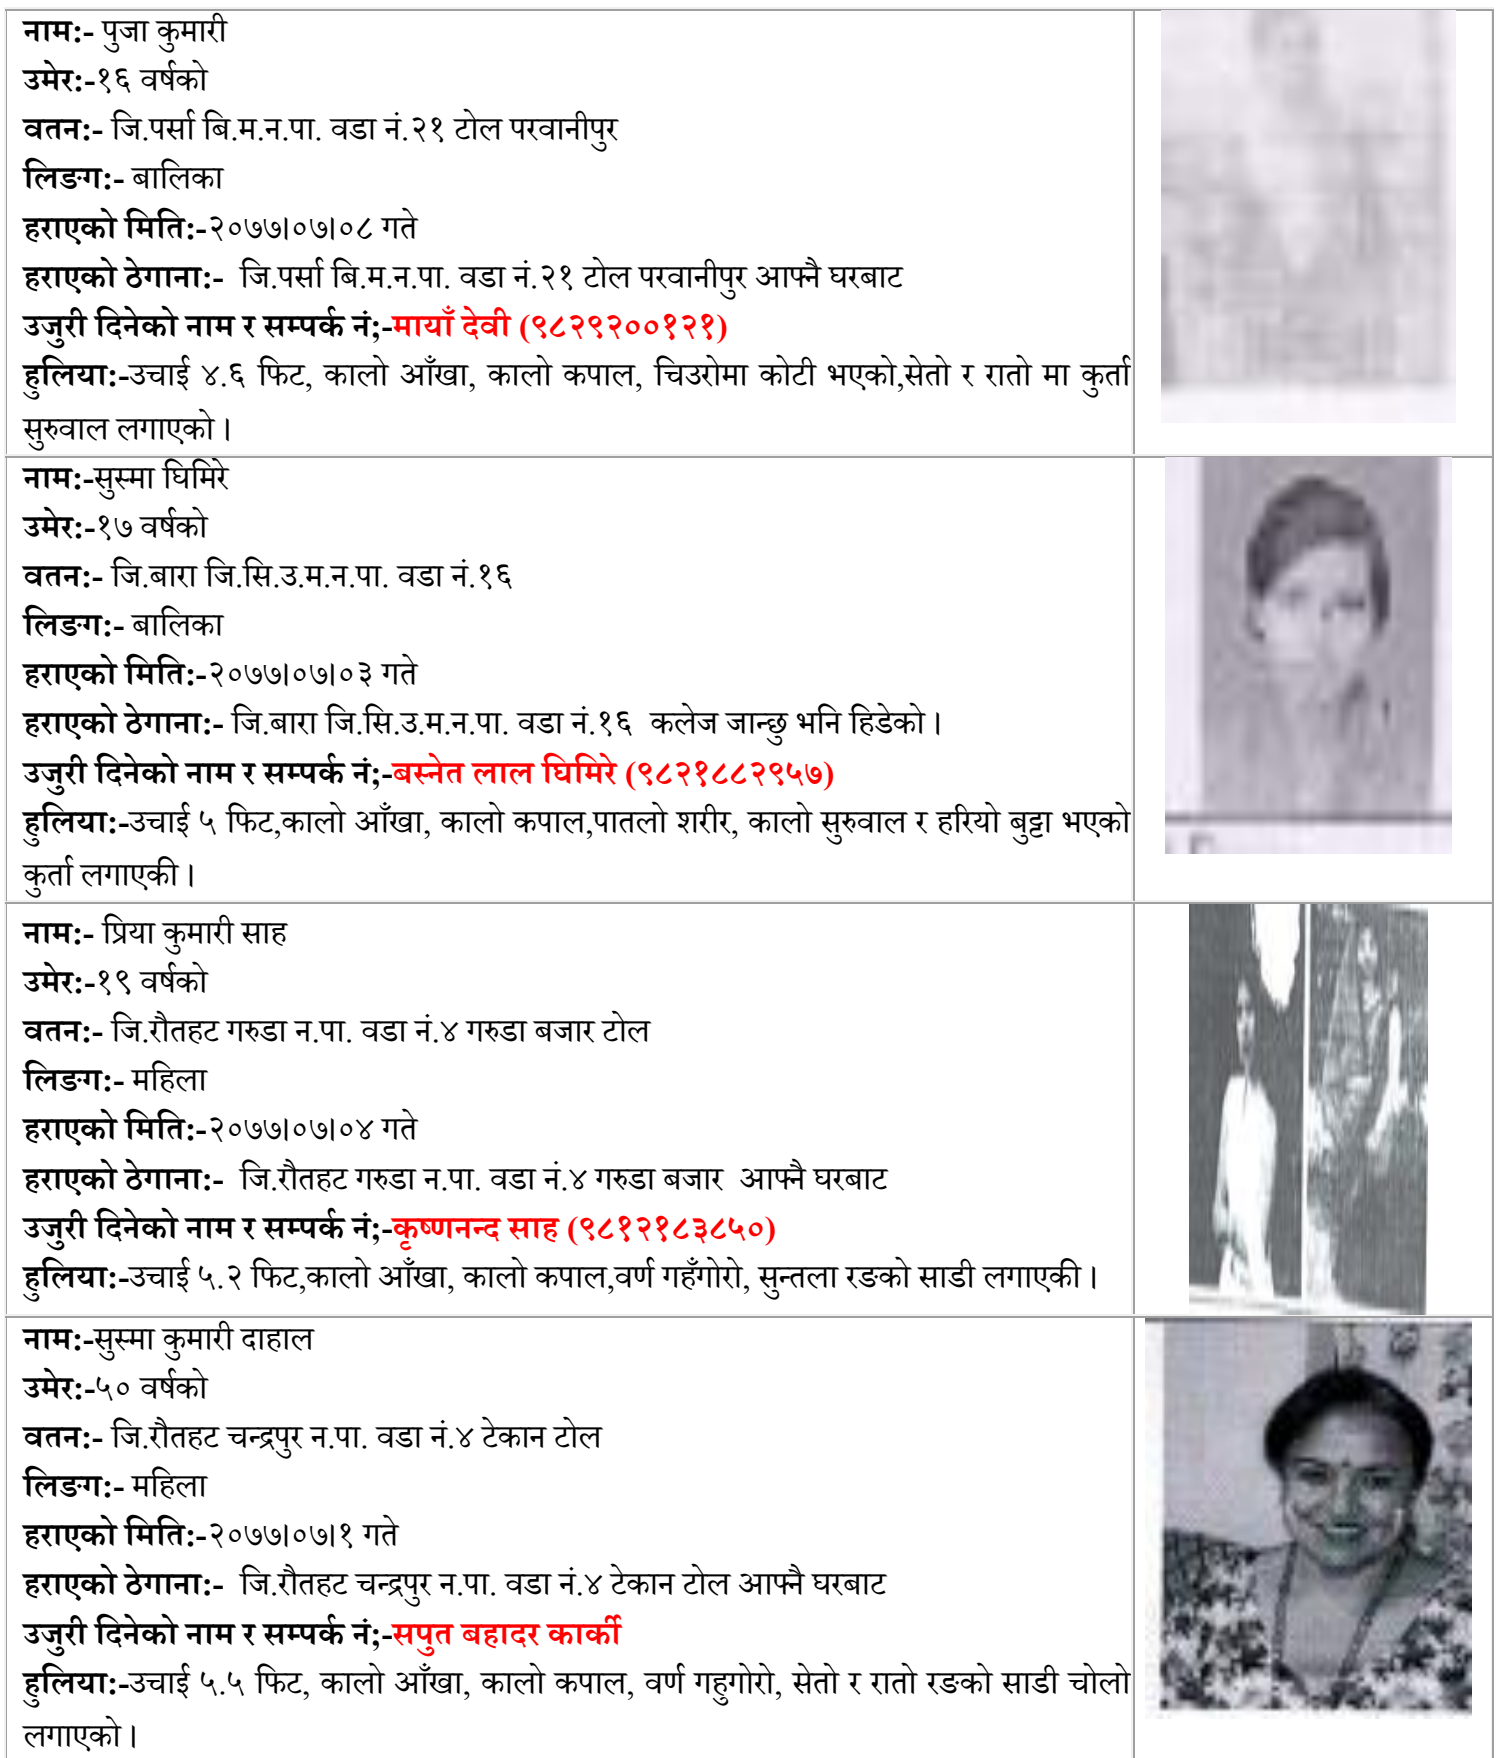 नाम:- पुजा कुमारी
उमेर:-१६ वर्षको
वतन:- जि.पर्सा बि.म.न.पा. वडा नं.२१ टोल परवानीपुर
लिङग:- बालिका
हराएको मिति:-२०७७।०७।०८ गते
हराएको ठेगाना:- जि.पर्सा बि.म.न.पा. वडा नं.२१ टोल परवानीपुर आफ्नै घरबाट
उजुरी दिनेको नाम र सम्पर्क नं;-मायाँ देवी (९८२९२००१२१)
हुलिया:-उचाई ४.६ फिट, कालो आँखा, कालो कपाल, चिउरोमा कोटी भएको,सेतो र रातो मा कुर्ता
सुरुवाल लगाएको।
नाम:-सुस्मा घिमिरे
उमेर:-१७ वर्षको
वतन:- जि.बारा जि.सि.उ.म.न.पा. वडा नं.१६
लिङग:- बालिका
हराएको मिति:-२०७७।०७।०३ गते
हराएको ठेगाना:- जि.बारा जि.सि.उ.म.न.पा. वडा नं.१६ कलेज जान्छु भनि हिडेको।
उजुरी दिनेको नाम र सम्पर्क नं;-बस्नेत लाल घिमिरे (९८२१८८२९५७)
हुलिया:-उचाई ५ फिट,कालो आँखा, कालो कपाल,पातलो शरीर, कालो सुरुवाल र हरियो बुट्टा भएको
कुर्ता लगाएकी।
नाम:- प्रिया कुमारी साह
उमेर:-१९ वर्षको
वतन:- जि.रौतहट गरुडा न.पा. वडा नं.४ गरुडा बजार टोल
लिङग:- महिला
हराएको मिति:-२०७७।०७।०४ गते
हराएको ठेगाना:- जि.रौतहट गरुडा न.पा. वडा नं.४ गरुडा बजार आफ्नै घरबाट
उजुरी दिनेको नाम र सम्पर्क नं;-कृष्णनन्द साह (९८१२१८३८५०)
हुलिया:-उचाई ५.२ फिट,कालो आँखा, कालो कपाल,वर्ण गहुँगोरो, सुन्तला रङको साडी लगाएकी।
नाम:-सुस्मा कुमारी दाहाल
उमेर:-५० वर्षको
वतन:- जि.रौतहट चन्द्रपुर न.पा. वडा नं.४ टेकान टोल
लिङग:- महिला
हराएको मिति:-२०७७।०७।१ गते
हराएको ठेगाना:- जि.रौतहट चन्द्रपुर न.पा. वडा नं.४ टेकान टोल आफ्नै घरबाट
उजुरी दिनेको नाम र सम्पर्क नं;-सपुत बहादर कार्की
हुलिया:-उचाई ५.५ फिट, कालो आँखा, कालो कपाल, वर्ण गहुगोरो, सेतो र रातो रङको साडी चोलो
लगाएको।